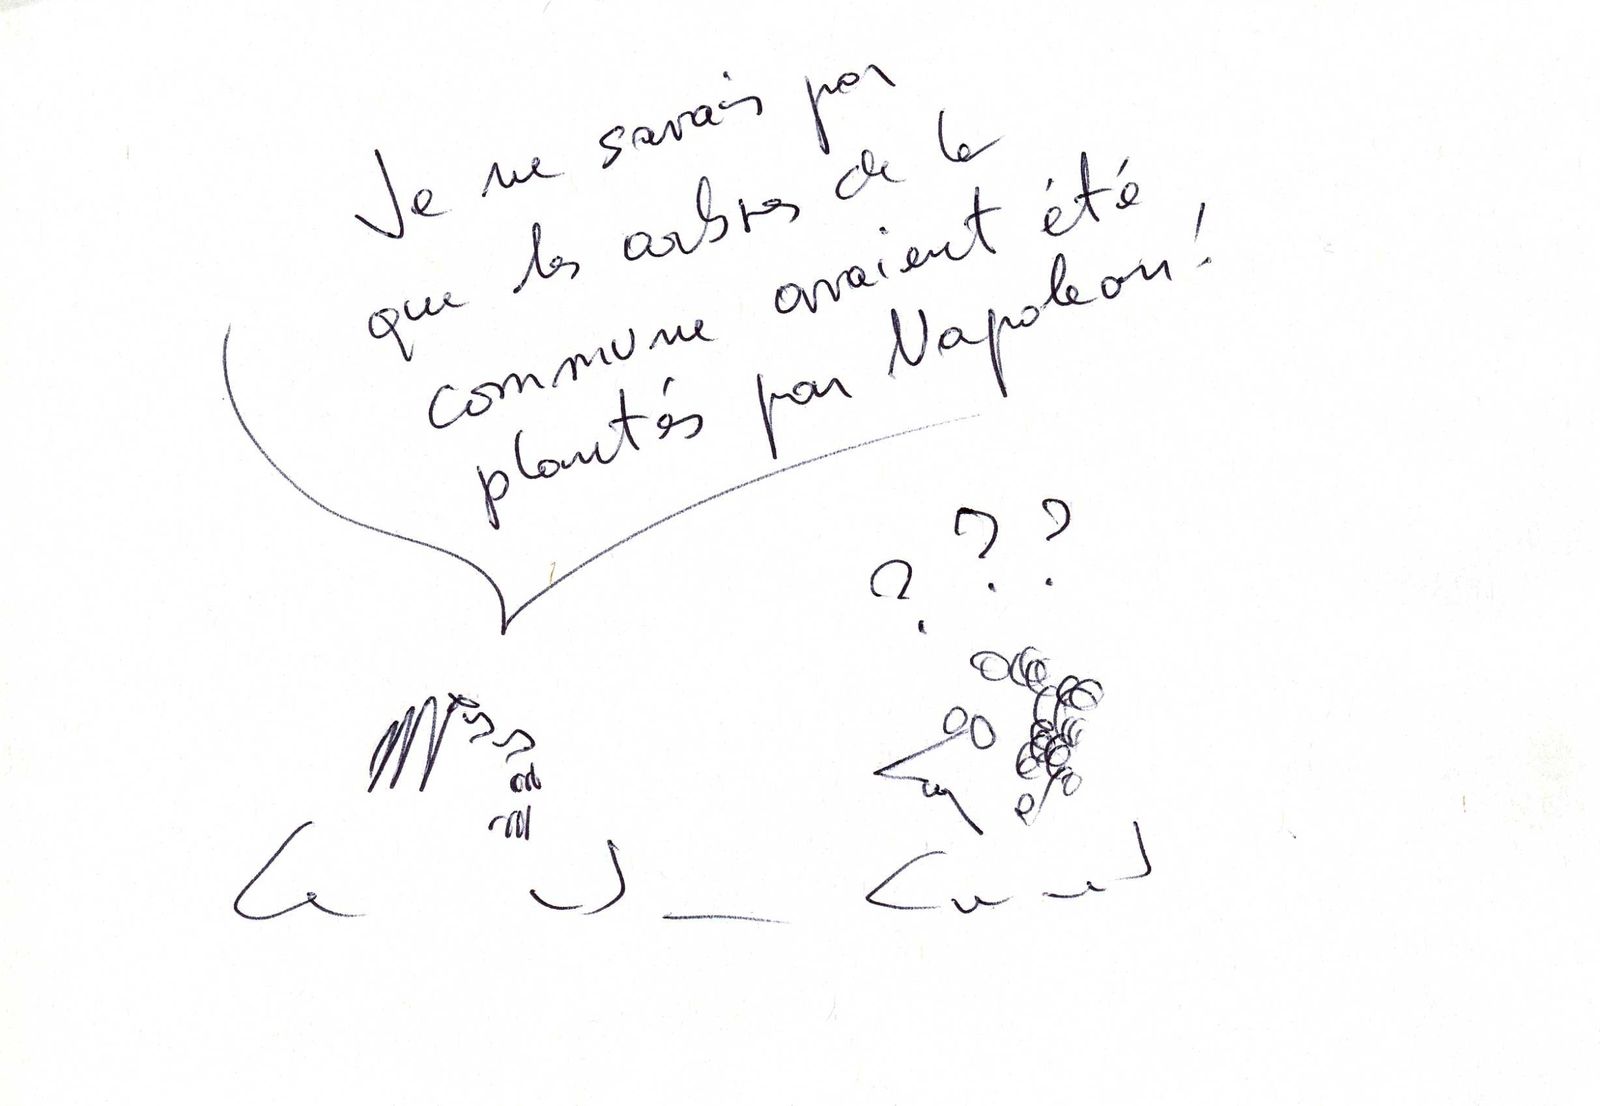 Je ne savais pas
que les arbres de la
commune avaient été
plantés par Napoleon!
? ? ?